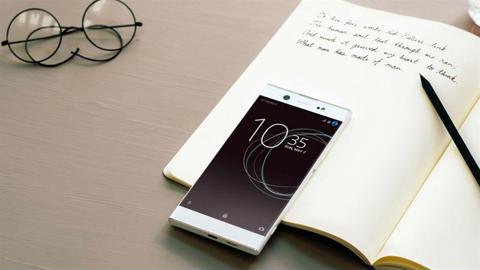 To her fair works did Nature link
The human soul that through me ran;
And much it grieved my heart to think
What man has made of man.
10
35
SUN, MAY 7